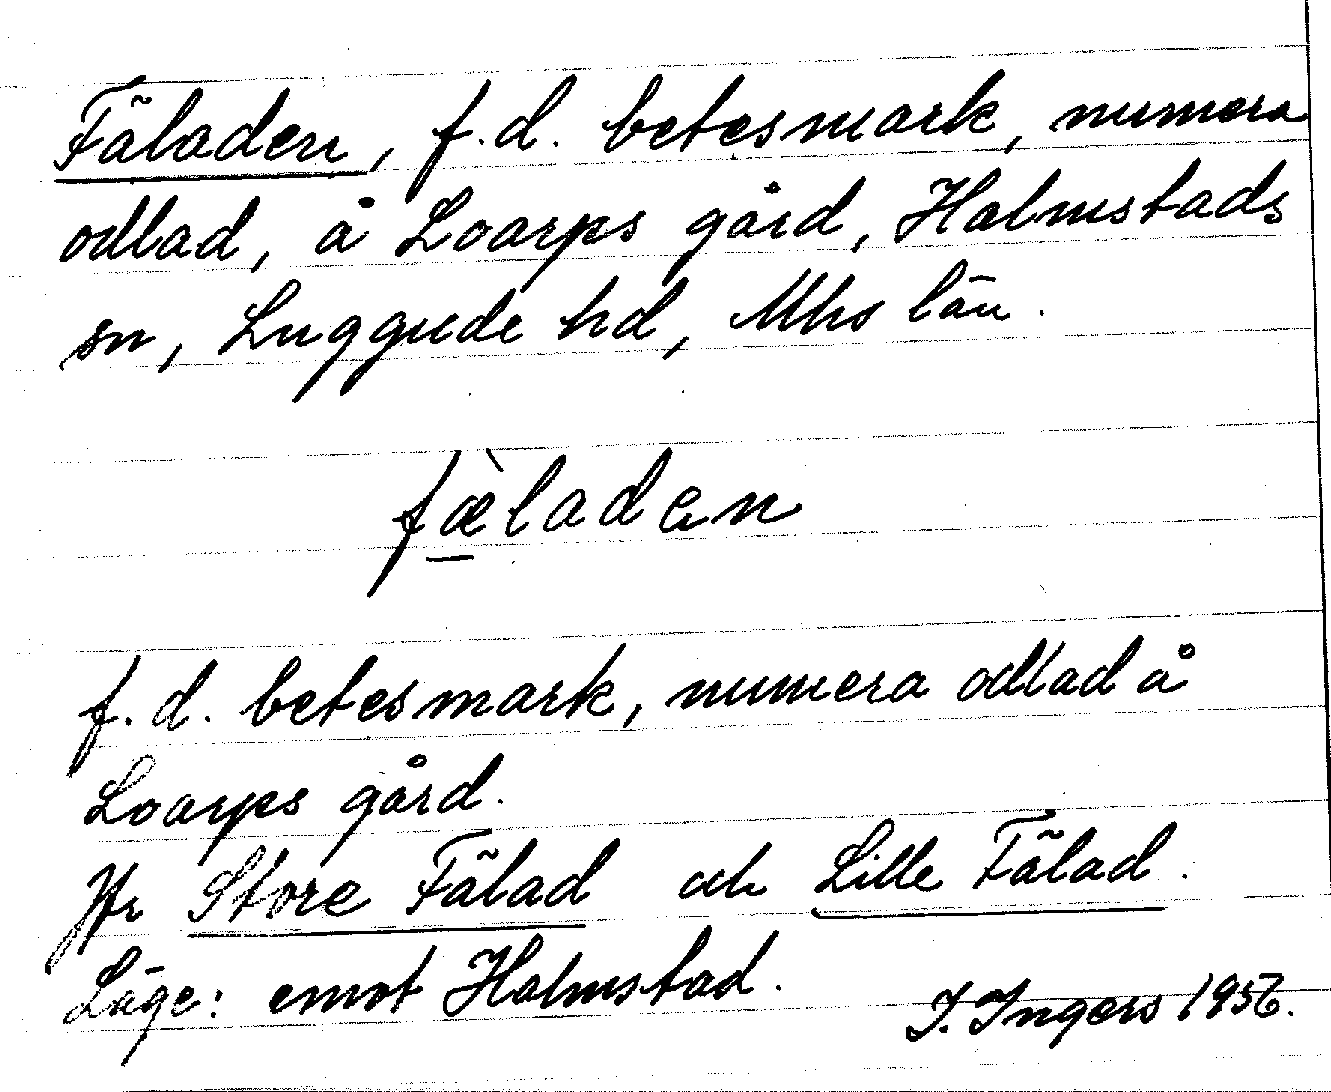 Fäladen, f.d. betesmark, numera
odlad, å Loarps gård, Halmstads
sn, Luggude hd, Mhs län.
fæ̀laden
f.d. betesmark, numera odlad å
Loarps gård.
Jfr Store Fälad och Lille Fälad.
Läge: emot Halmstad.
I. Ingers 1956.